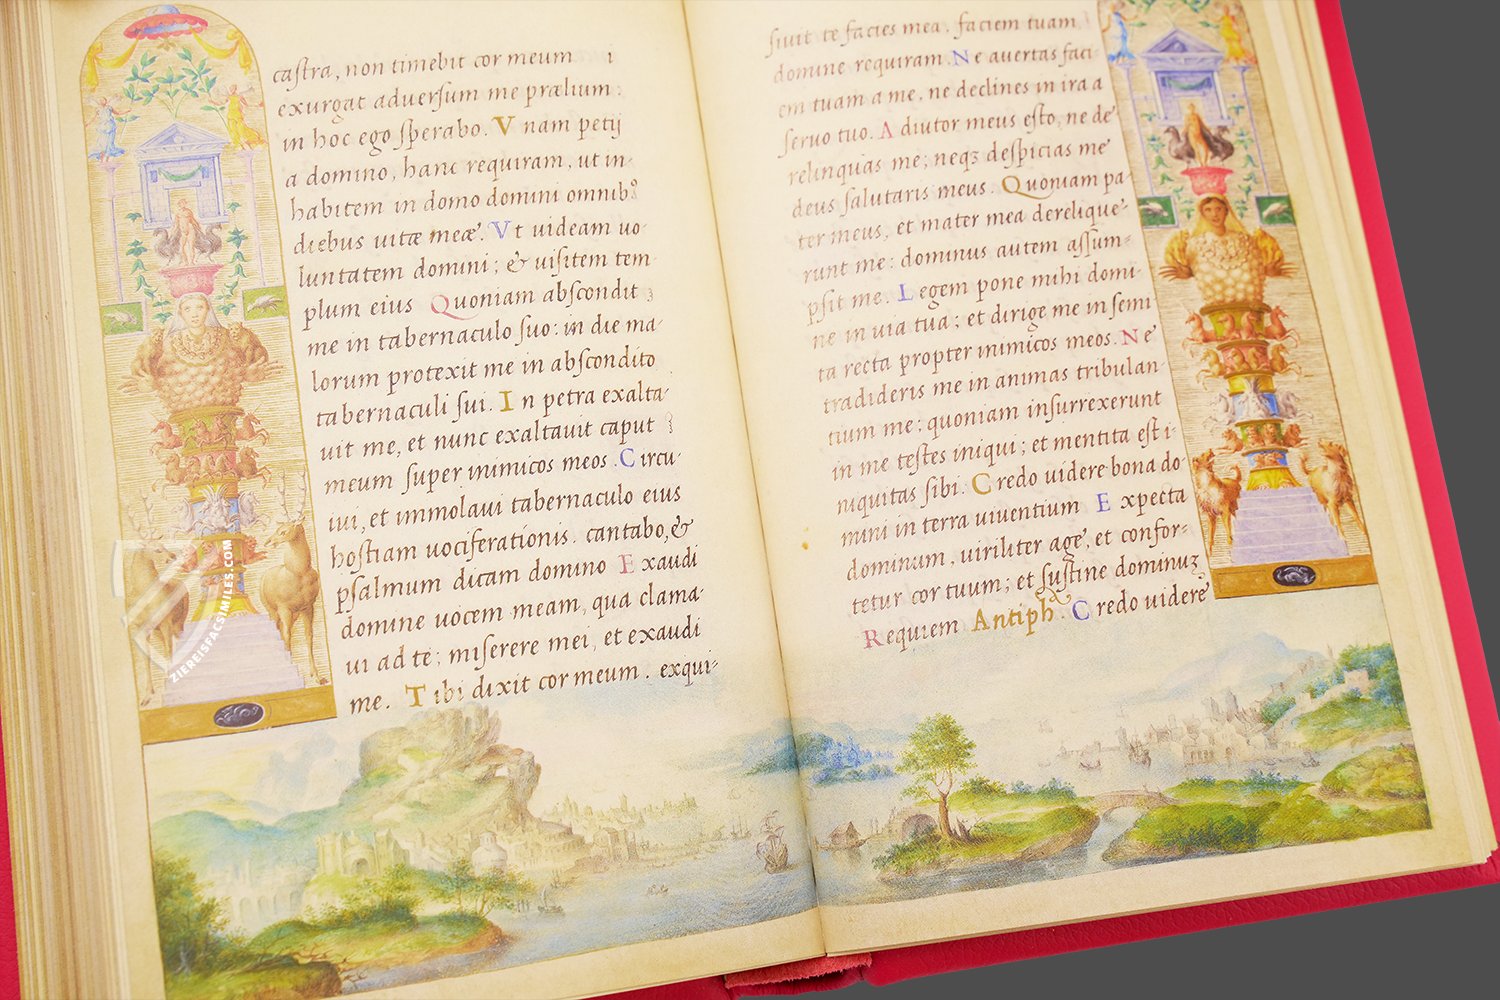 castra, non timebit cor meum i
exurgat aduersum me prælium:
in hoc ego sperabo. Vnam petij
a domino, hanc requiram, ut in-
habitem in domo domini omnibꝯ
diebus uitæ meæ. Vt uideam uo-
luntatem domini; & uisitem tem
plum eius Quoniam abscondit
me in tabernaculo suo: in die ma-
lorum protexit me in abscondito
tabernaculi sui. In petra exalta-
uit me, et nunc exaltauit caput
meum super inimicos meos. Circu-
iui, et immolaui tabernaculo eius
hostiam uociferationis. cantabo, &
psalmum dicam domino Exaudi
domine uocem meam, qua clama-
ui ad te; miserere mei, et exaudi
me. Tibi dixit cor meum. exqui-
siuit te facies mea, faciem tuam
domine requiram. Ne auertas faci-
em tuam a me, ne declines in ira a
seruo tuo. Adiutor meus esto, ne de
relinquas me; neqꝫ despicias me
deus salutaris meus. Quoniam pa-
ter meus, et mater mea derelique-
runt me: dominus autem assum-
psit me. Legem pone mihi domi-
ne in uia tua; et dirige me in semi
ta recta propter inimicos meos. Ne
tradideris me in animas tribulan-
tium me; quoniam insurrexerunt
in me testes iniqui; et mentita est i-
niquitas sibi. Credo uidere bona do-
mini in terra uiuentium Expecta
dominum, uiriliter age, et confor-
tetur cor tuum; et sustine dominuʒ
Requiem Antiph. Credo uidere
ZIEREISFACSIMILES.COM